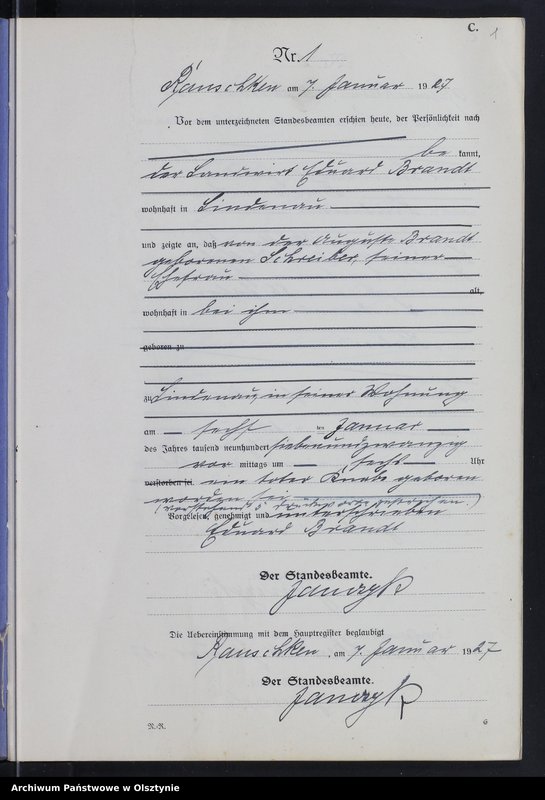 C.
1
Nr. 1
Rauschken am 7. Januar 1927
Vor dem unterzeichneten Standesbeamten erschien heute, der Persönlichkeit nach
be kannt,
der Landwirt Eduard Brandt
wohnhaft in Lindenau
und zeigte an, daß von der Auguste Brandt
geborenen Schreiber, seiner
Ehefrau
alt,
wohnhaft in bei ihm
geboren zu
zu Lindenau, in seiner Wohnung
am sechs ten Januar
des Jahres tausend neunhundert siebenundzwanzig
vor mittags um sechs Uhr
verstorben sei. ein toter Knabe geboren
worden sei
(Vorstehend 5 Druckworte gestrichen.)
Vorgelesen, genehmigt und unterschrieben
Eduard Brandt
Der Standesbeamte.
Die Uebereinstimmung mit dem Hauptregister beglaubigt
Rauschken, am 7. Januar 1927
Der Standesbeamte.
R.-R.
6
Archiwum Państwowe w Olsztynie